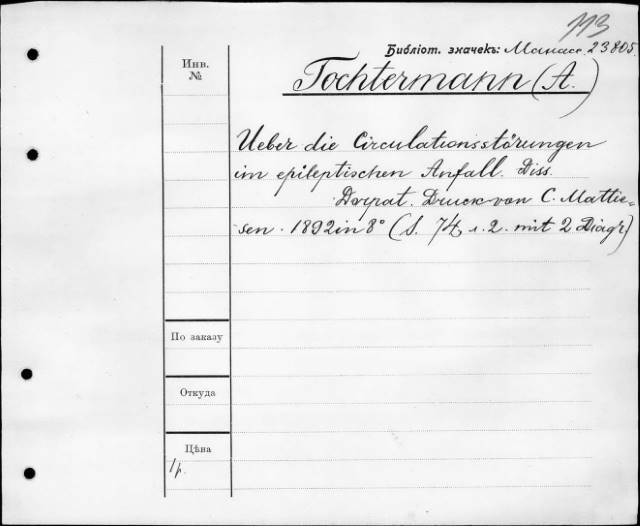 113
Библіот. значекъ: Манасс. 23805.
Инв.
№
Tochtermann (A.)
Ueber die Circulationsstörungen
im epileptischen Anfall. Diss.
Dorpat. Druck von C. Mattie-
sen. 1892 in 8° (S. 74 u. 2. mit 2 Diagr)
По заказу
Откуда
Цѣна
1р.